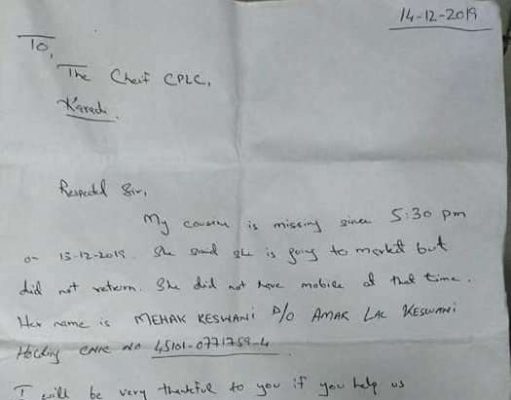 14-12-2019
To,
The Cheif CPLC,
Karachi.
Respected Sir,
My cousin is missing since 5:30 pm
on 13-12-2019. She said she is going to market but
did not return. She did not have mobile at that time.
Her name is MEHAK KESWANI D/O AMAR LAL KESWANI
Holding CNIC NO 45101-0771759-4.
I will be very thankful to you if you help us